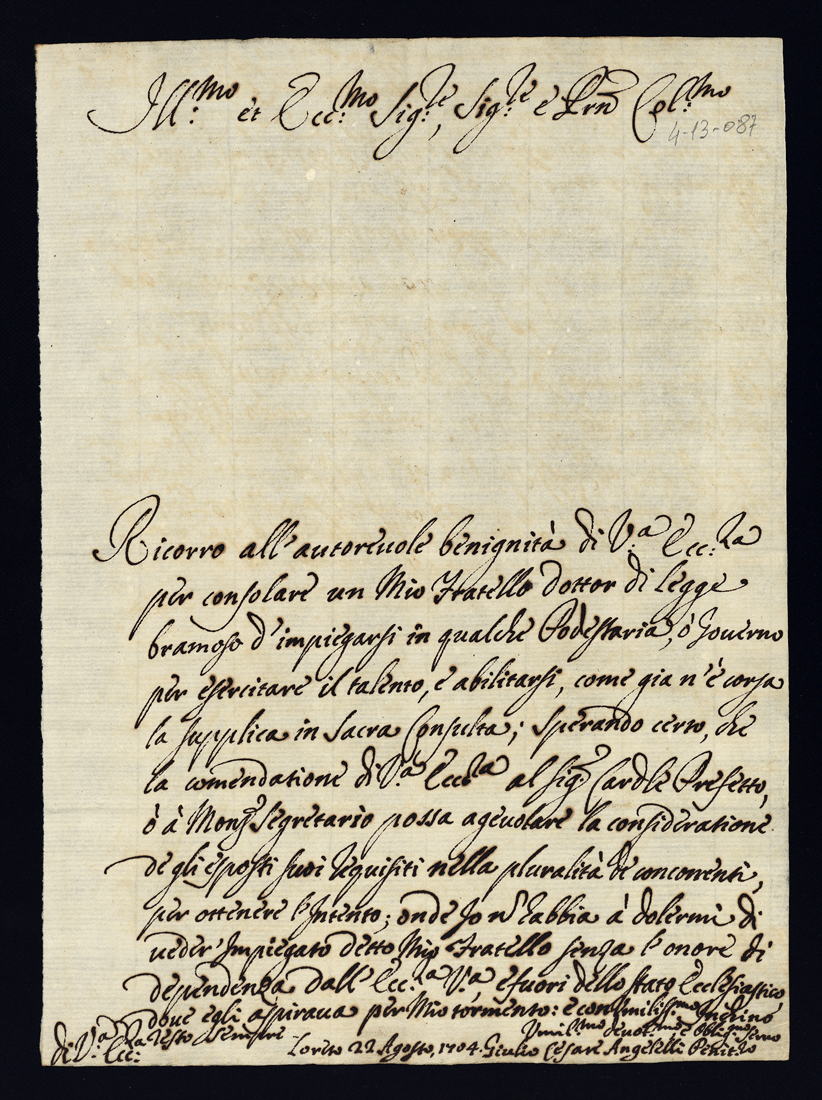 Ill:mo et Ecc:mo Sig:re, Sig:re e Prñ Col:mo
4-13-087
Ricorro all'autoreuole benignità di V:a Ecc:za
per consolare un Mio Fratello Dottor di legge
bramoso d'impiegarsi in qualche Podestaria, ò Gouerno
per esercitare il talento, e abilitarsi, come gia n'è corsa
la supplica in Sacra Consulta; sperando certo, che
la comendatione di V:a Ecc:za al Sig:r Cardle Prefetto,
ò à Mons:r Segretario possa ageuolare la consideratione
degli esposti suoi requisiti nella pluralità de concorrenti,
per ottenere l'Intento; onde Io nõ habbia à dolermi di
ueder' Impiegato detto Mio Fratello senza l'onore di
dependenza dall'Ecc:a V:a e fuori dello stato Ecclesiastico
doue egli aspiraua per Mio tormento: e con umiliss:mo Inchino
resto sempre
di V:a Ecc:za
Umil:mo deuot:mo e Oblig:mo Seruo
Loreto 22 Agosto, 1704. Giulio Cesare Angelelli Penit:ro